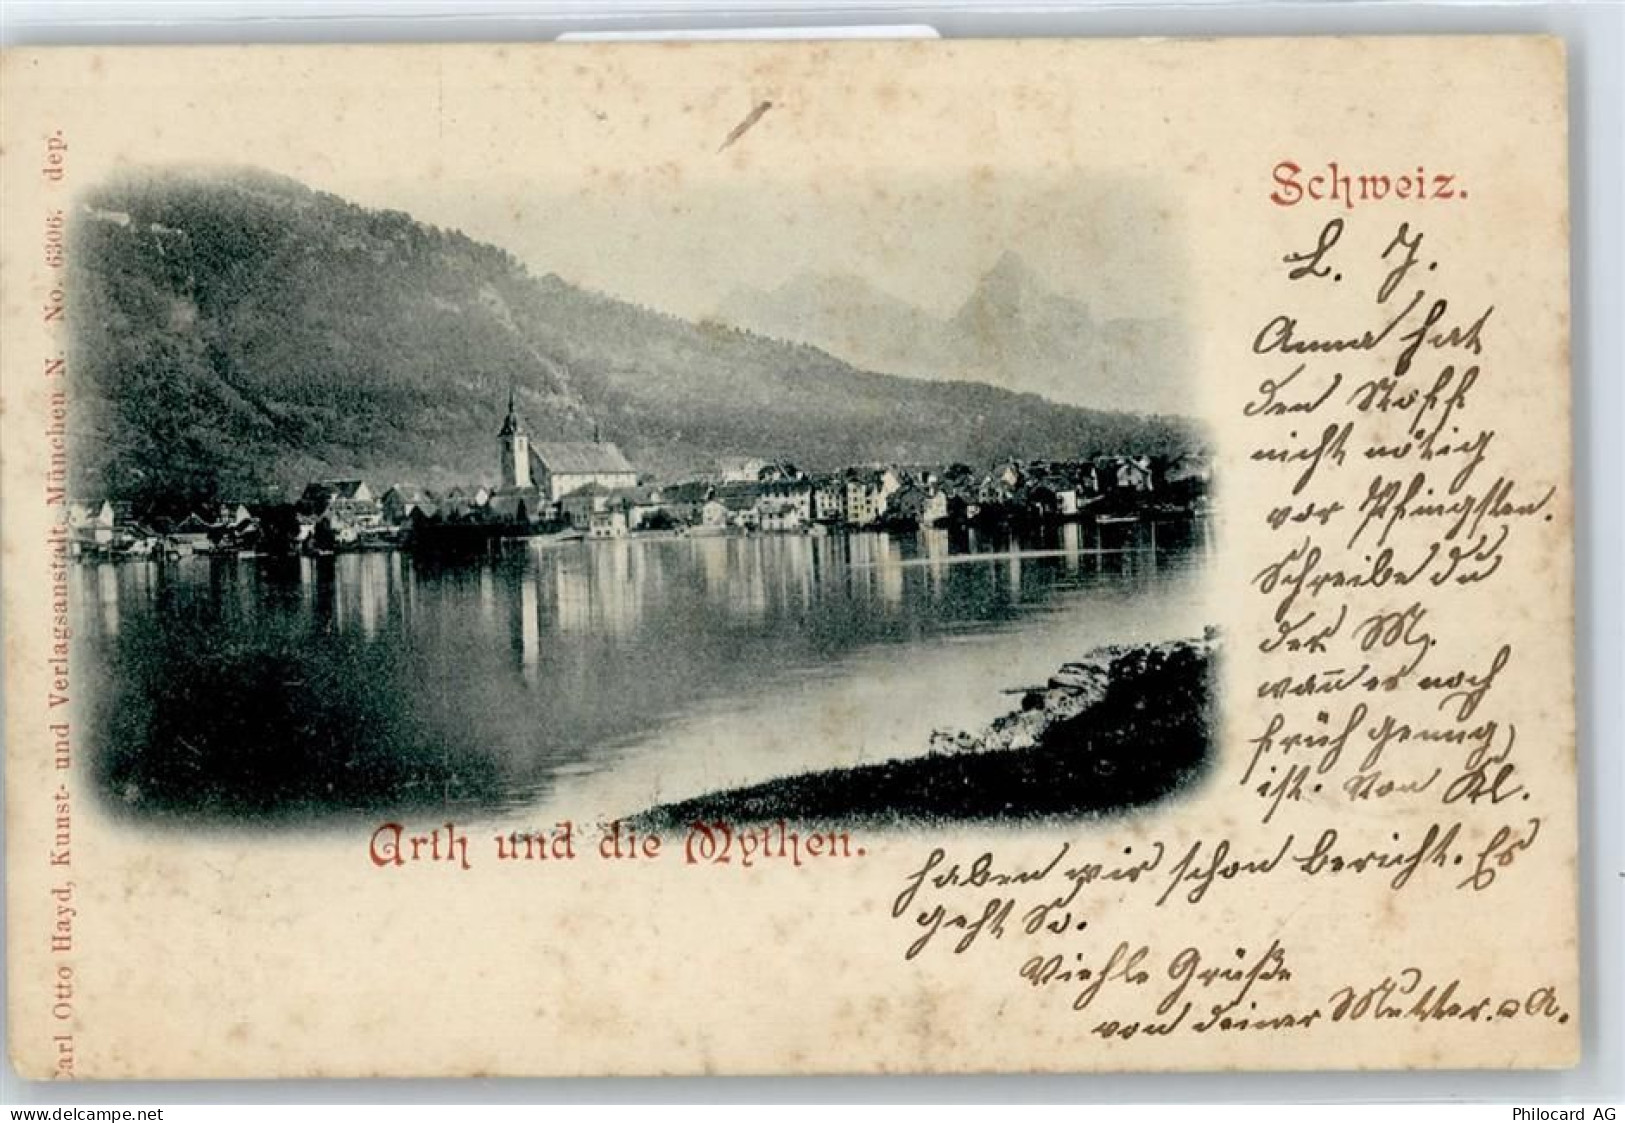 Schweiz.
L. J.
Anna hat
den Stoff
nicht nötig
vor Pfingsten.
Schreibe du
der M.
wan̄ es noch
früh genug
ist. Von Kl.
haben wir schon bericht. Es
geht So.
Viehle Grüße
von deiner Mutter. u A.
Arth und die Mythen.
Carl Otto Hayd, Kunst- und Verlagsanstalt, München N. No. 6306. dep.
www.delcampe.net
Philocard AG